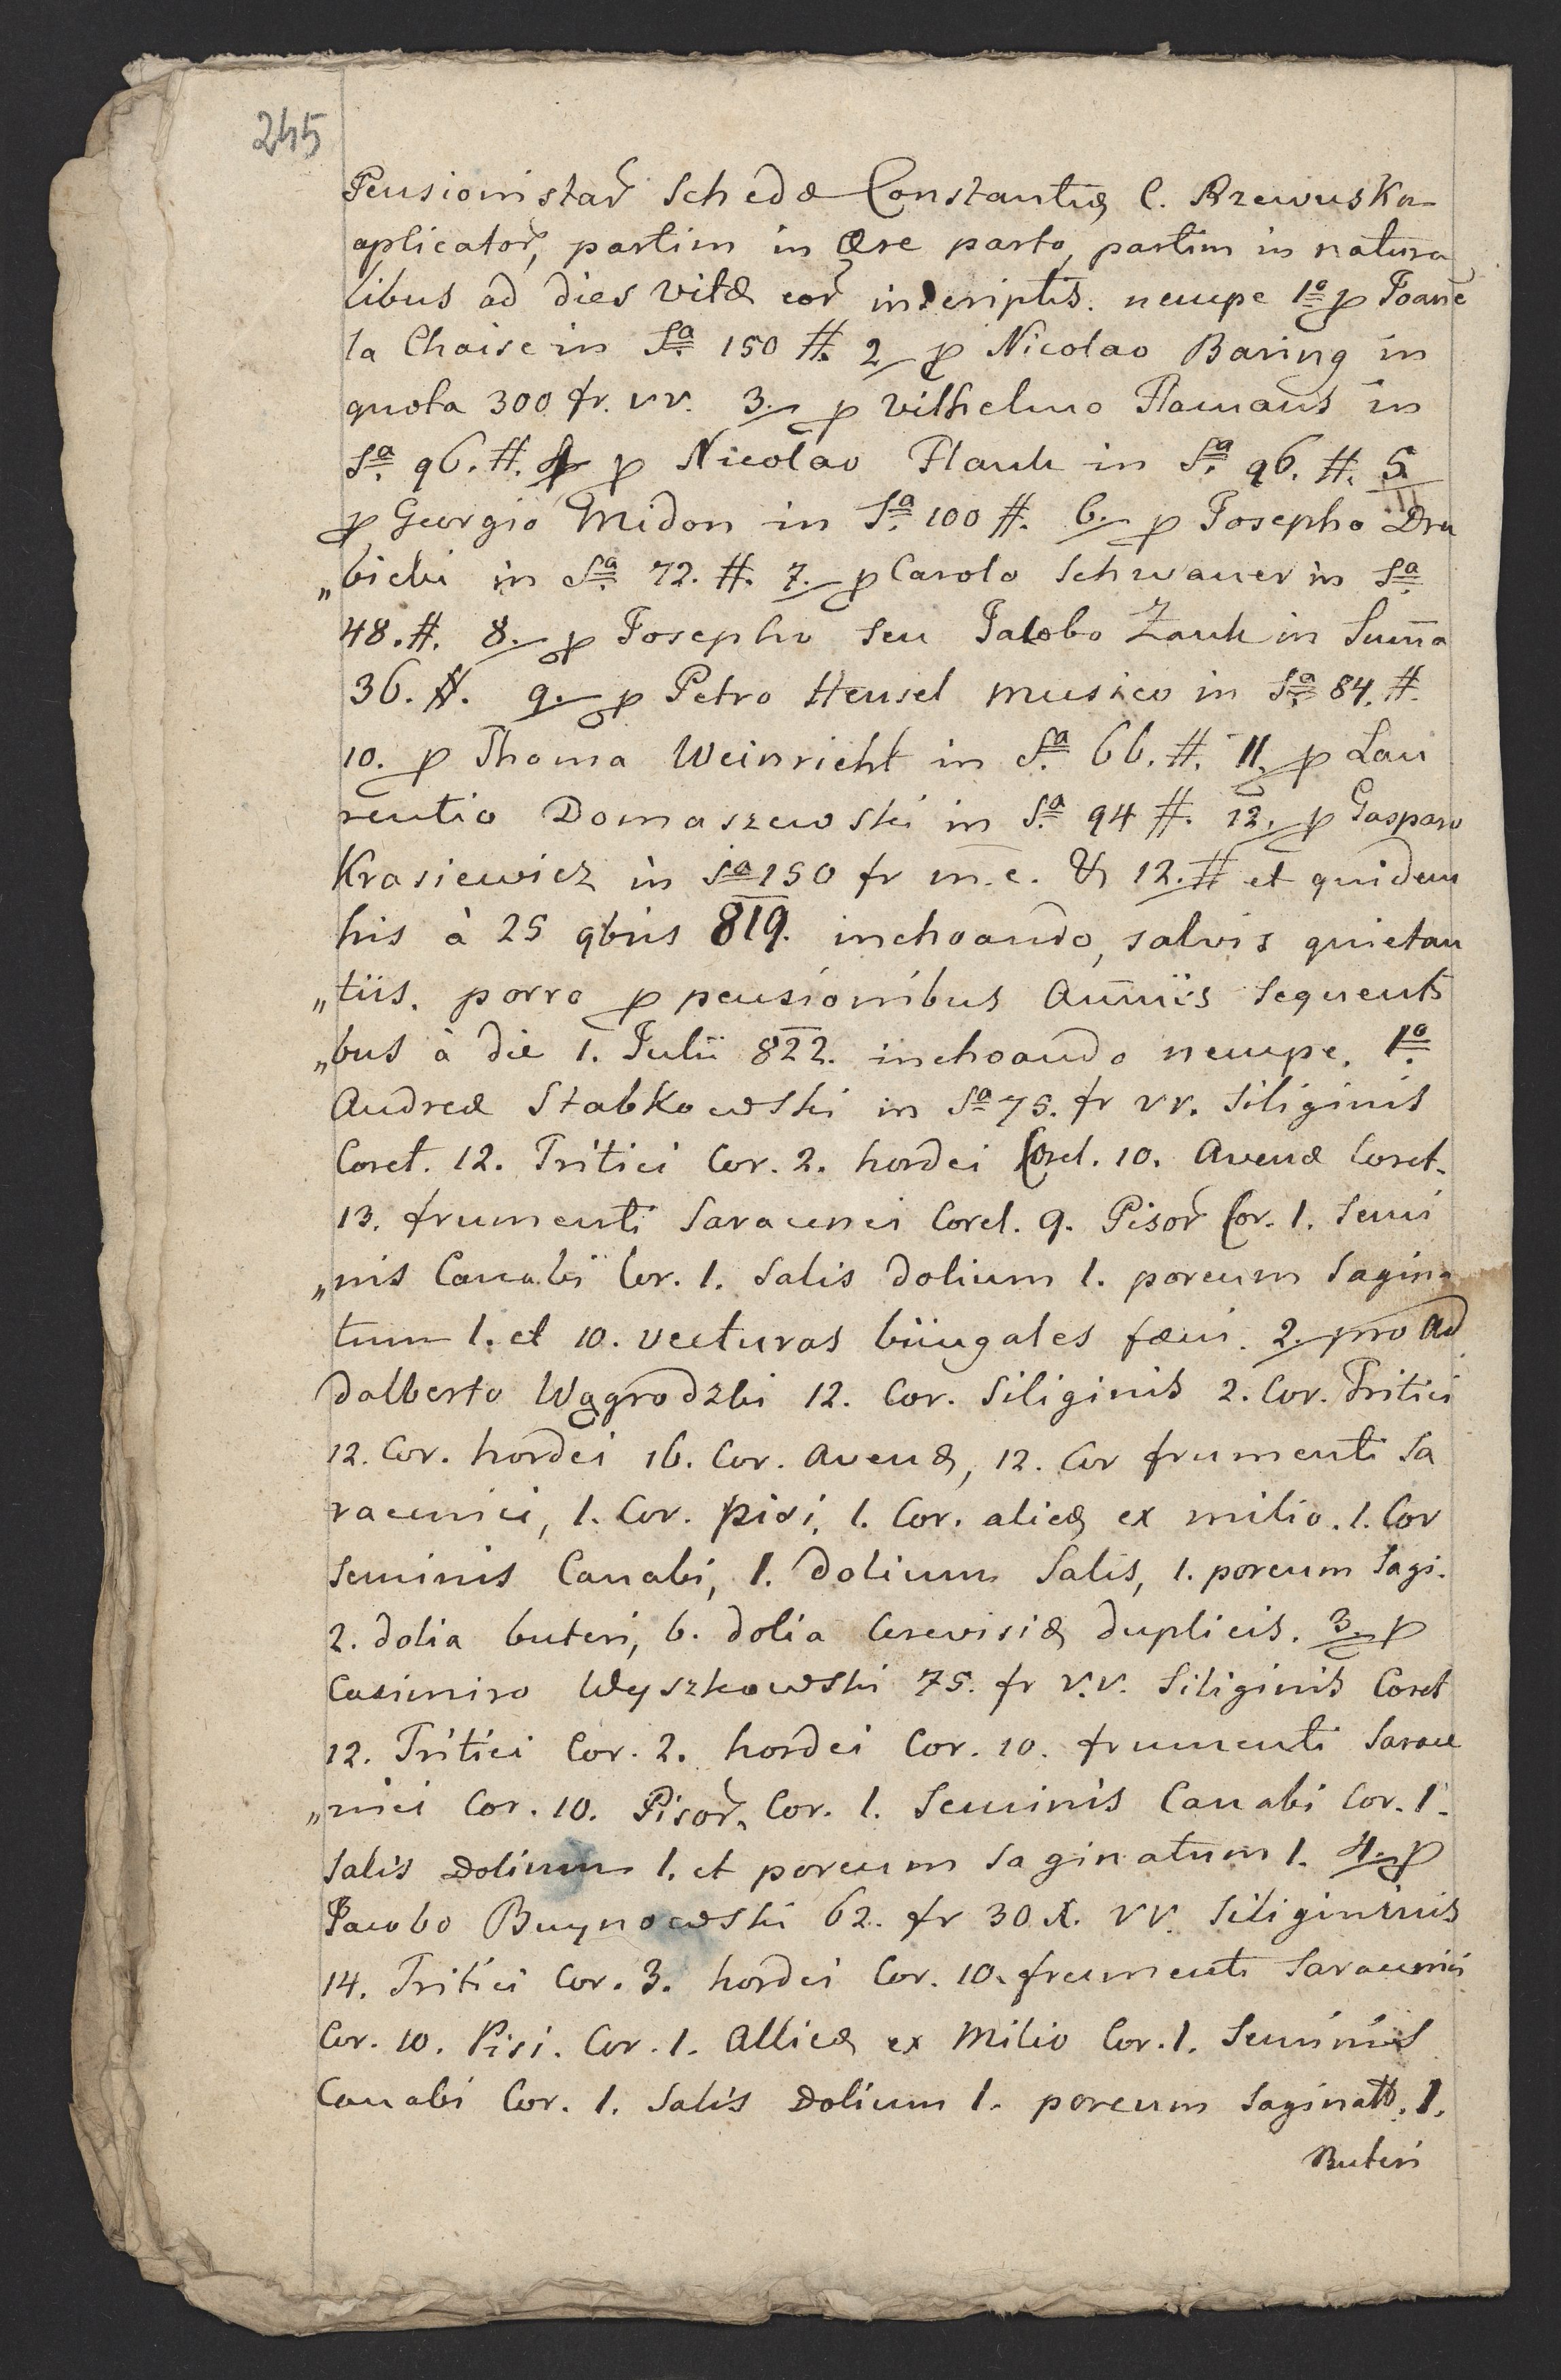 245
Pensionistar̃ Schedæ Constantiæ C. Rzewuska
aplicator̃, partim in Ære parto, partim in natura
libus ad dies vitæ eor̃ inscriptis. nempe 1º p Joañe
la Chaise in Sª 150 #. 2 p Nicolao Baring in
quota 300 fr. vv. 3. p Vilhelmo Flamans in
Sª 96. #. 4 p Nicolao Hauk in Sª 96. #. 5.
p Georgio Midon in Sª 100 #. 6. p Josepho Dru
„bicki in Sª 72. #. 7. p Carolo Schwaner in Sª
48. #. 8. p Josepho seu Jacobo Zauk in Sum̃a
36. #. 9. p Petro Hensel musico in Sª 84. #.
10. p Thoma Weinricht in Sª 66. #. 11. p Lau
rentio Domaszewski in Sª 94 #. 12. p Gasparo
Krasiewicz in Sª 150 fr m. c. & 12. # et quidem
his à 25 9bris 819. inchoando, salvis quietan
„tiis. porro p pensionibus Añuis sequenti
„bus à die 1. Julii 822. inchoando nempe. 1º
Andreæ Stabkowski in Sª 75. fr vv. Siliginis
Coret. 12. Tritici Cor. 2. hordei Coret. 10. Avenæ Coret.
13. frumenti Saracenici Coret. 9. Pisor̃ Cor. 1. Semi
„nis Canabi Cor. 1. Salis dolium 1. porcum Sagina
tum 1. et 10. vecturas biiugales fæni. 2. pro Ad
dalberto Wągrodzki 12. Cor. Siliginis 2. Cor. Tritici
12. Cor. hordei 16. Cor. Avenæ, 12. Cor frumenti Sa
racenici, 1. Cor. pisi, 1. Cor. alicæ ex milio. 1. Cor
Seminis Canabi, 1. dolium Salis, 1. porcum Sagi.
2. dolia buteri, 6. dolia Cerevisiæ duplicis. 3. p
Casimiro Wyszkowski 75. fr v.v. Siliginis Coret
12. Tritici Cor. 2. hordei Cor. 10. frumenti Sarace
„nici Cor. 10. Pisor̃, Cor. 1. Seminis Canabi Cor. 1.
Salis Dolium 1. et porcum Saginatum 1. 4. p
Jacobo Buynowski 62. fr 30 x. vv. Siligininis
14. Tritici Cor. 3. hordei Cor. 10. frumenti Saracenici
Cor. 10. Pisi. Cor. 1. Allicæ ex Milio Cor. 1. Seminis
Canabi Cor. 1. Salis Dolium 1. porcum Saginatt. 1.
Buteri